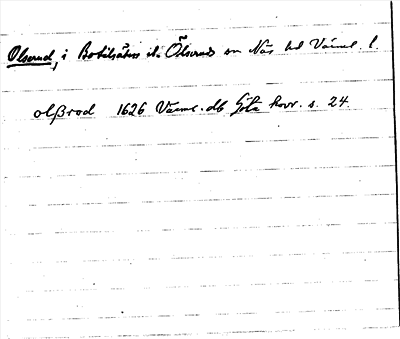 Olserud, i Botilsäters sn Ölserud sn Näs hd Värml. l.
olßrod 1626 Värml. db Göta hovr. s. 24.